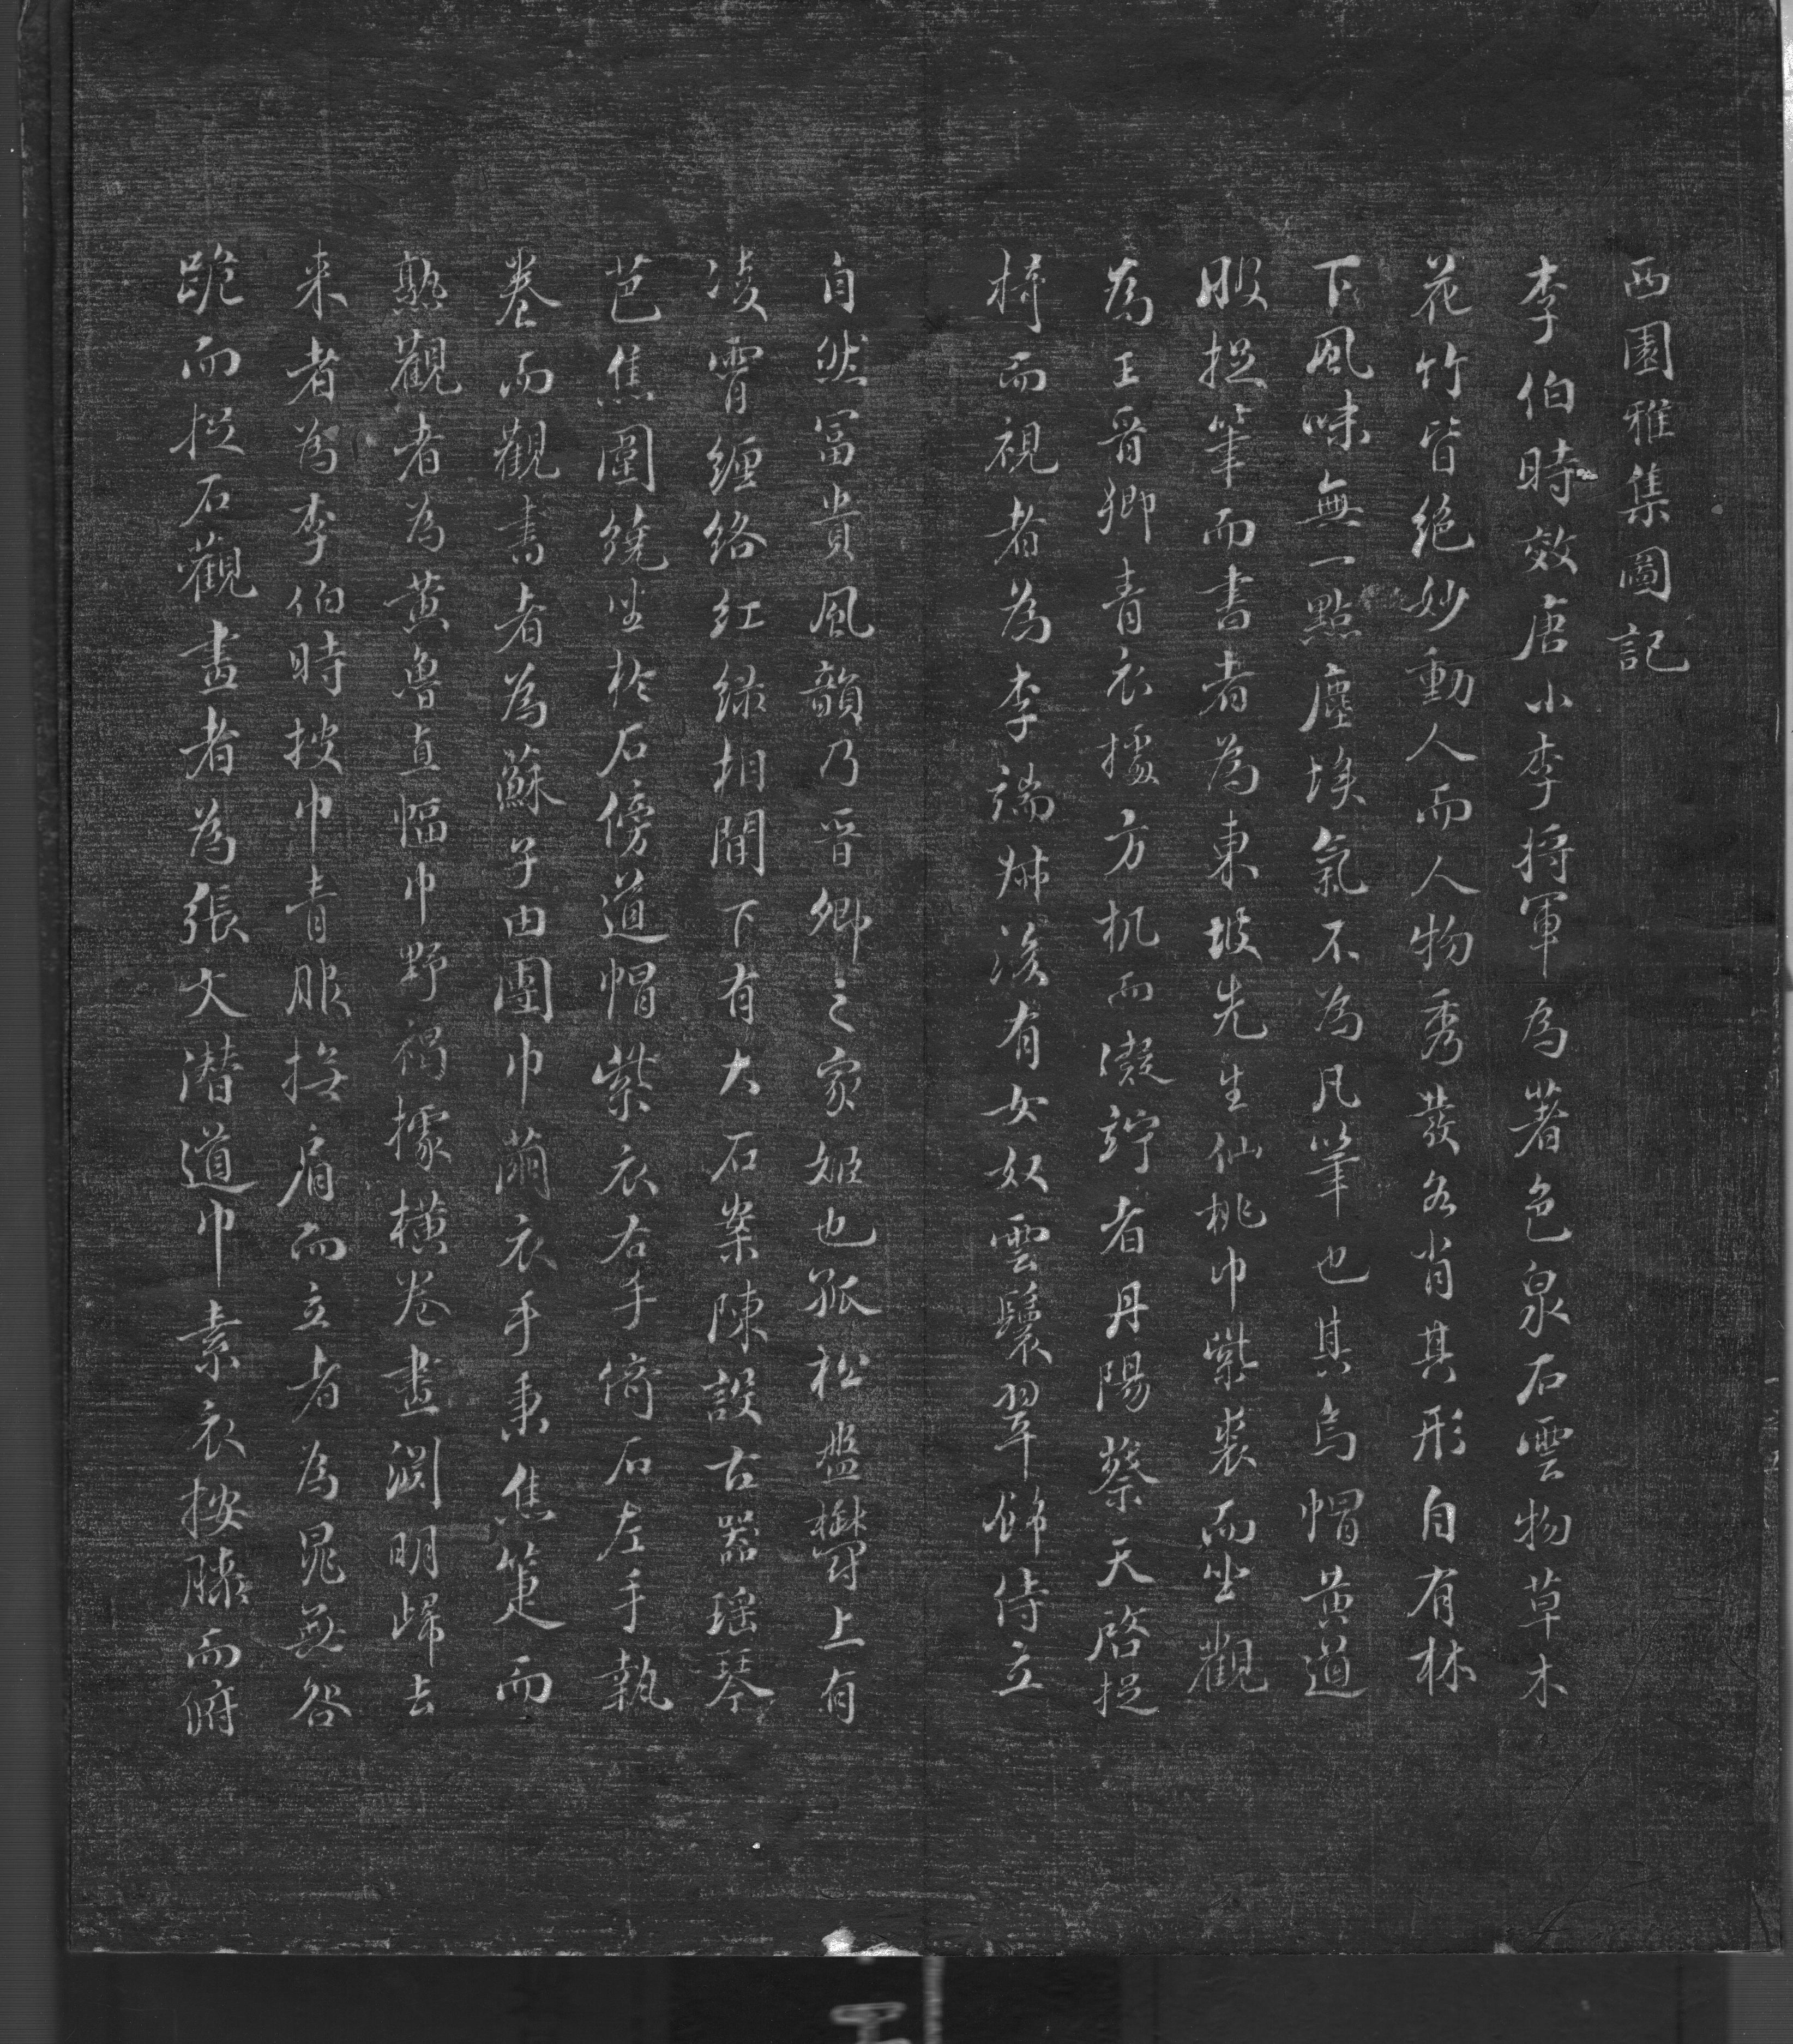 西園雅集圖記
李伯時效唐小李將軍為著色泉石雲物草木
花竹皆絕妙動人而人物秀發各肖其形自有林
下風味無一點塵埃氣不為凡筆也其烏帽黃道
服捉筆而書者為東坡先生仙桃巾紫裘而坐觀
為王晉卿青衣據方机而凝竚者丹陽蔡天啓捉
椅而視者為李端叔後有女奴雲鬟翠飾侍立
自然富貴風韻乃晉卿之家姬也孤松盤欝上有
凌霄纏絡紅綠相間下有大石案陳設古器瑤琴
芭焦圍繞坐於石傍道帽紫衣右手倚石左手執
卷而觀書者為蘇子由團巾繭衣手秉焦箑而
熟觀者為黃魯直幅巾野褐據橫卷畫淵明歸去
来者為李伯時披巾青服撫肩而立者為晁無咎
跪而捉石觀畫者為張文潛道巾素衣按膝而俯